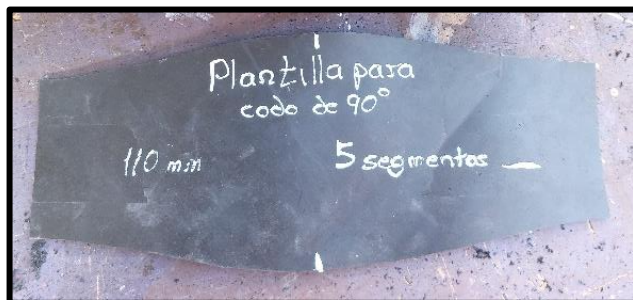 Plantilla para
codo de 90°
110 mm
5 segmentos